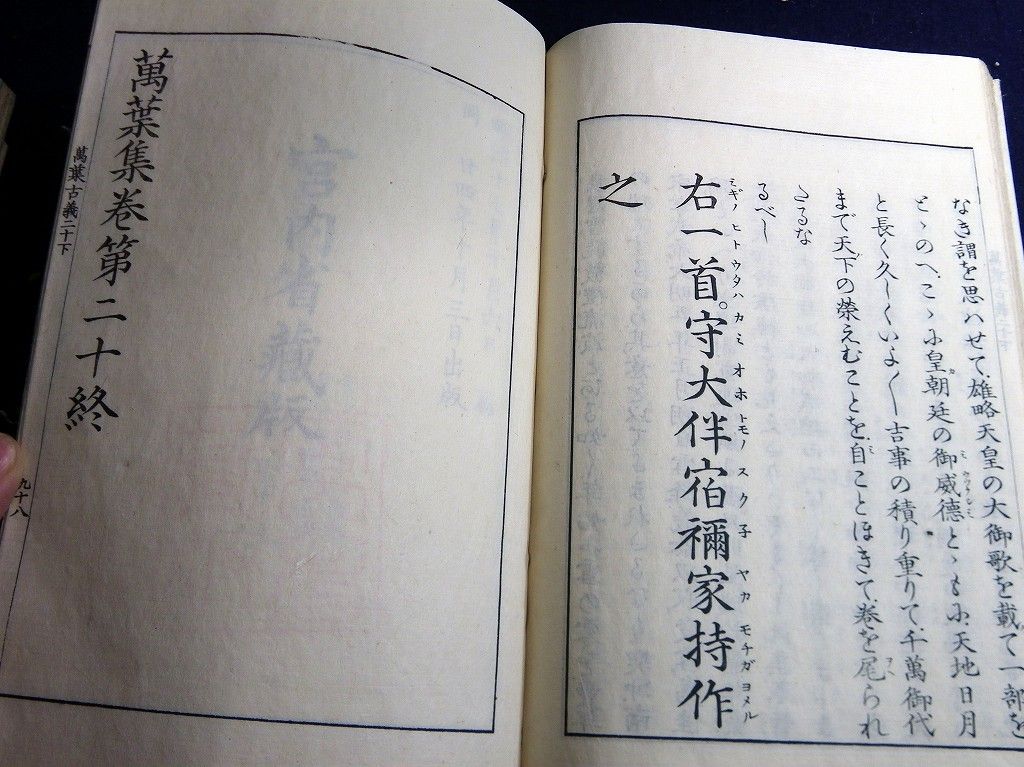 なき謂を思ハせて、雄略天皇の大御歌を載て一部を
とゝのへ、こゝに皇朝廷の御威徳とゝもに、天地日月
と長く久しくいよ〳〵吉事の積り重りて千萬御代
まで天下の榮えむことを、自ことほきて、巻を尾られ
たるな
るべし
右一首。守大伴宿禰家持作
ミギノヒトウタハカミオホトモノスク子ヤカモチガヨメル
之
萬葉集巻第二十終
萬葉古義二十下
九十八
宮内省蔵版